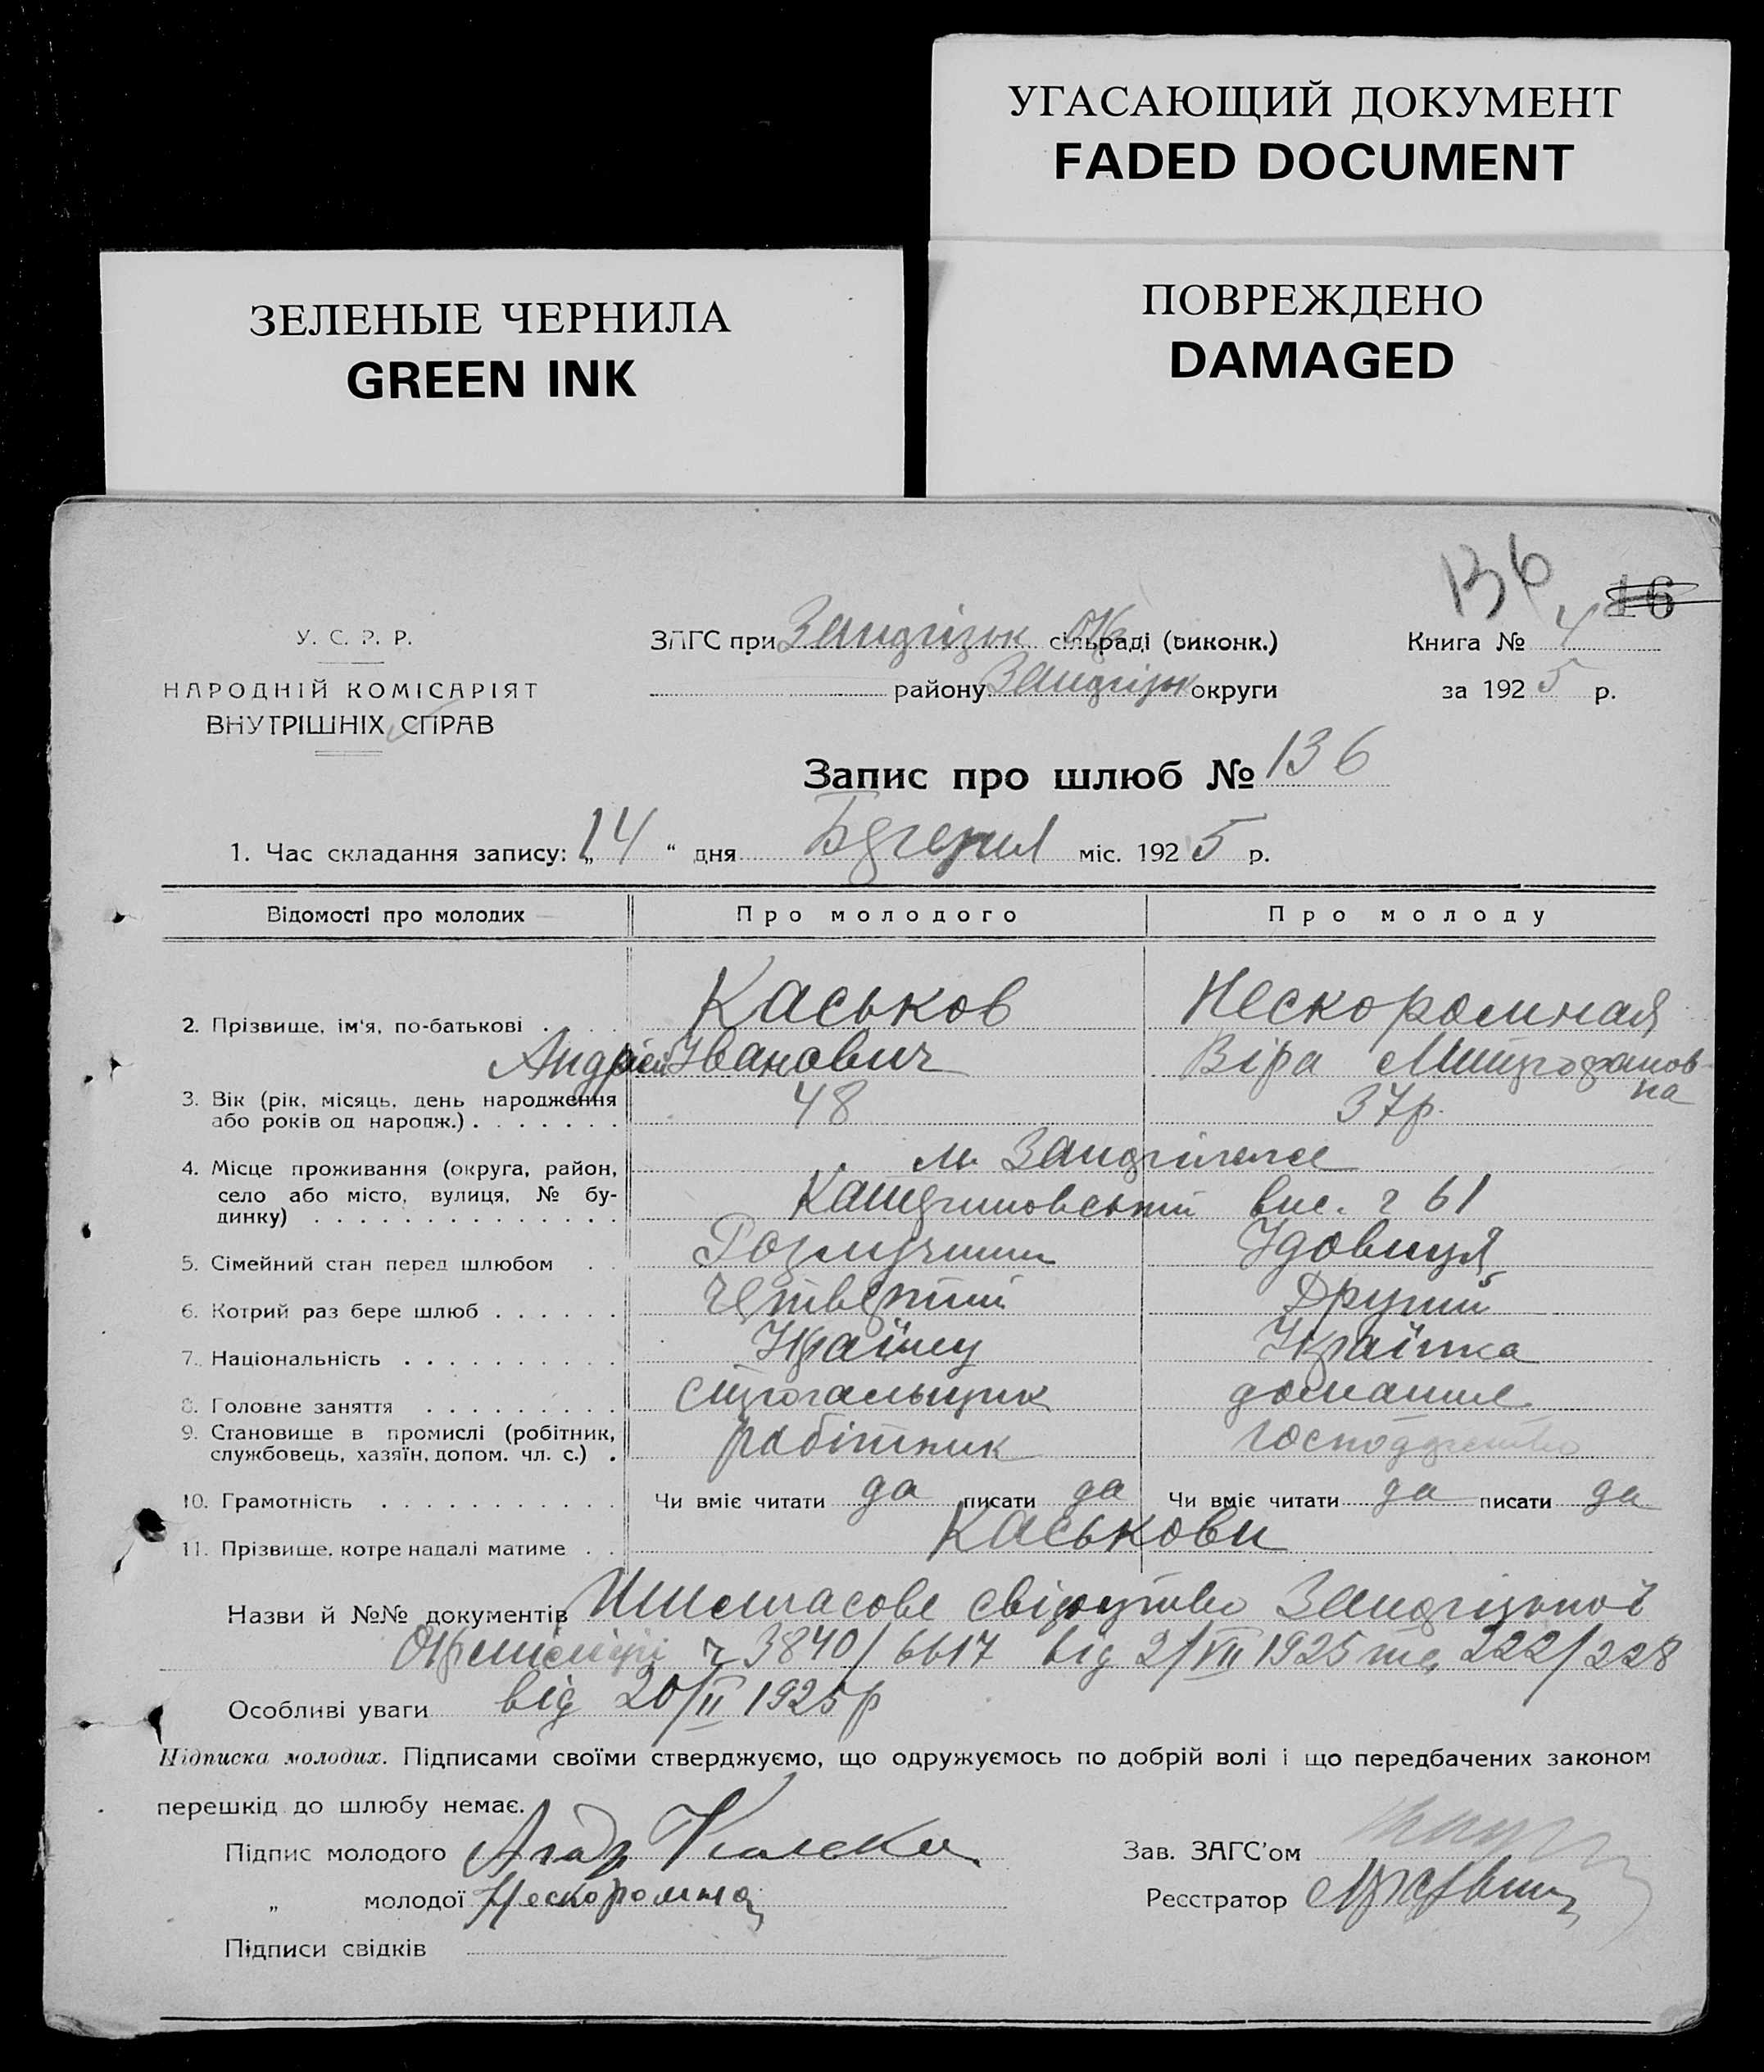 УГАСАЮЩИЙ ДОКУМЕНТ
FADED DOCUMENT
ЗЕЛЕНЫЕ ЧЕРНИЛА
GREEN INK
ПОВРЕЖДЕНО
DAMAGED
136
16
У. С. Р. Р.
НАРОДНІЙ КОМІСАРІЯТ
ВНУТРІШНІХ СПРАВ
ЗАГС при сільраді (виконк.)
району округи
Книга № 4
за 1925 р.
Запис про шлюб № 136
1. Час складання запису: „14“ дня міс. 1925 р.
Відомості про молодих
Про молодого
Про молоду
2. Прізвище, ім'я, по-батькові
Каськов
Андрій Іванович
Нескоромная
Віра Митрофанов-
на
3. Вік (рік, місяць, день народження
або років од народж.)
48
37р.
4. Місце проживання (округа, район,
село або місто, вулиця, № бу-
динку)
м. вис. ч 61
5. Сімейний стан перед шлюбом
Удовиця
6. Котрий раз бере шлюб
Четвертий
Другий
7. Національність
Украінец
Украінка
8. Головне заняття
строгальщик
домашне
9. Становище в промислі (робітник,
службовець, хазяїн, допом. чл. с.)
робітник
господарство
10. Грамотність
Чи вміє читати да писати да
Чи вміє читати да писати да
11. Прізвище, котре надалі матиме
Каськови
Назви й №№ документів свідоцтво
ч 3840/6617 від 2/VII 1925 та 222/228
Особливі уваги від 20/II 1925р
Підписка молодих. Підписами своїми стверджуємо, що одружуємось по добрій волі і що передбачених законом
перешкід до шлюбу немає.
Підпис молодого
„ молодої Нескоромна
Підписи свідків
Зав. ЗАГС'ом
Реєстратор